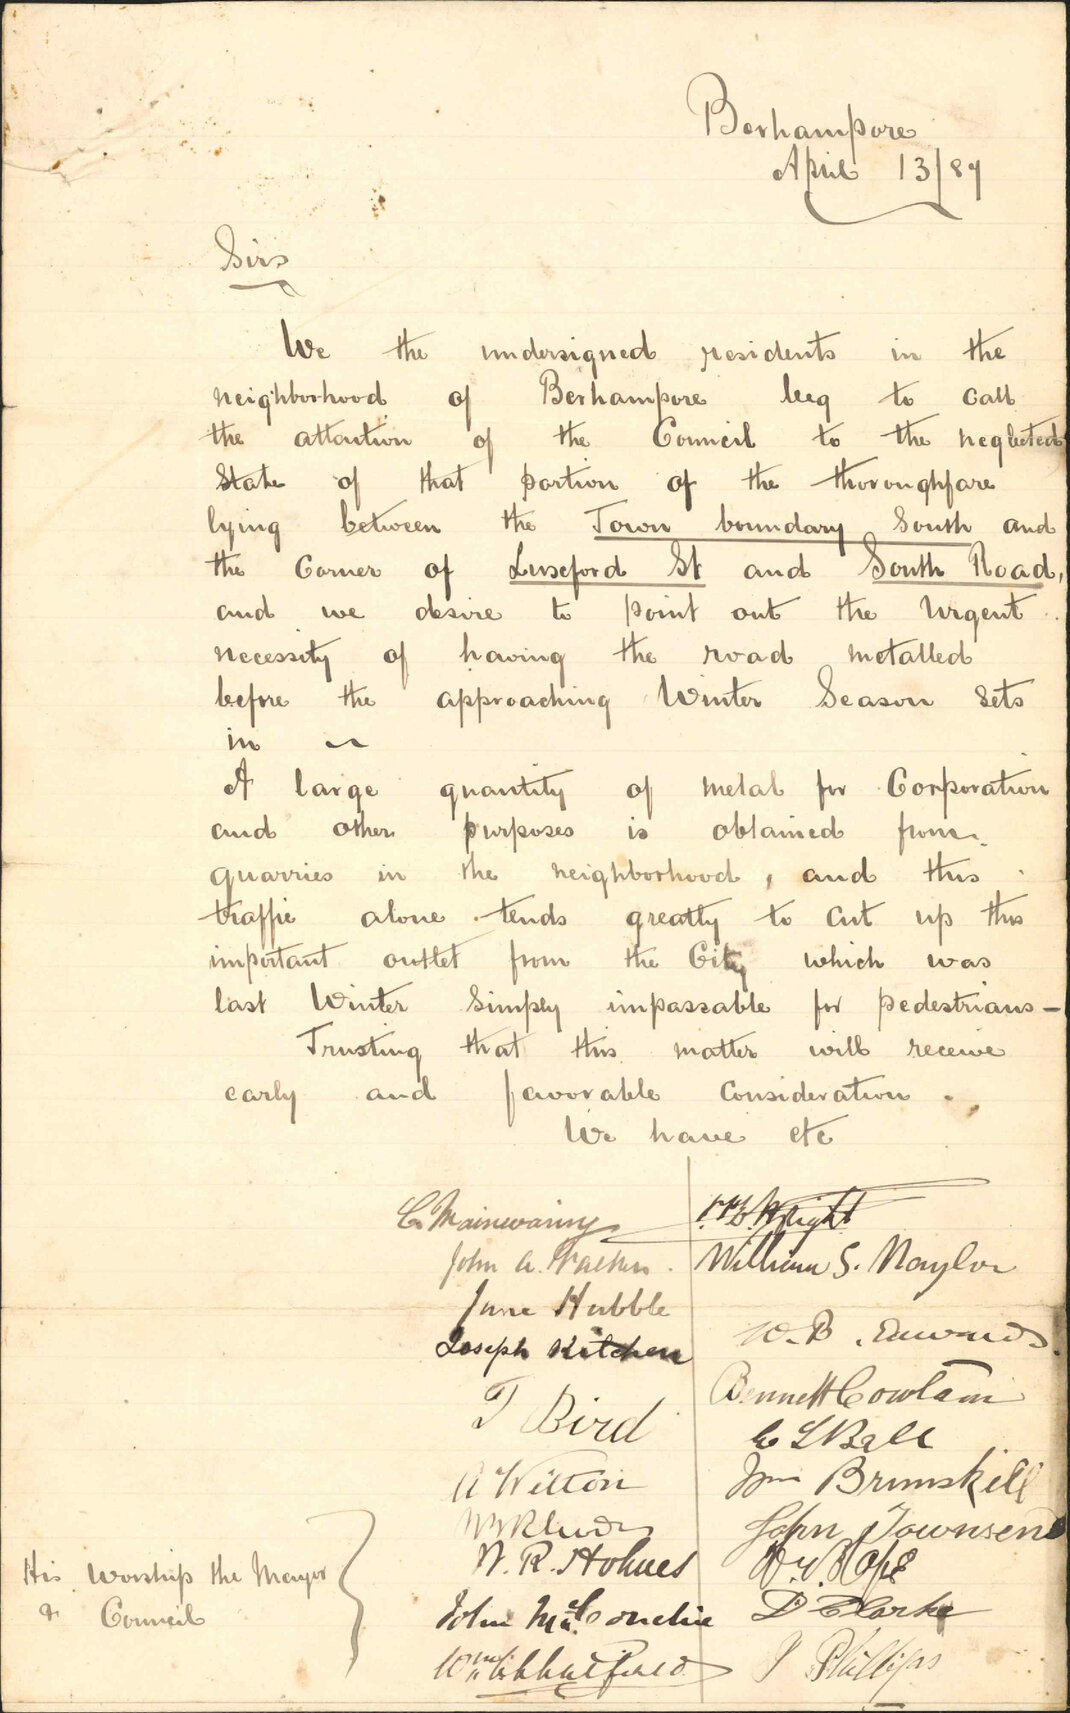 Berhampore
April 13/87
Sirs
We the undersigned residents in the
neighborhood of Berhampore beg to call
the attention of the Council to the neglected
State of that portion of the thoroughfare
lying between the Town boundary South and
the Corner of Luxford St and South Road,
and we desire to point out the Urgent
necessity of having the road metalled
before the approaching Winter Season sets
in ~
A large quantity of metal for Corporation
and other purposes is obtained from
quarries in the neighborhood, and this
traffic alone tends greatly to cut up this
important outlet from the City which was
last Winter Simply impassable for pedestrians –
Trusting that this matter will receive
early and favorable consideration.
We have etc
C. Mainwaring
Wright
John A. Walker.
William S. Naylor
Jane Hubble
W. B. Edwards.
Joseph Kitchen
Bennett Cowlam
T Bird
Ball
A Wilton
Wm Brunskill
John Townsend
W. R. Holmes
Pope
John McConchie
D Clarke
Wm
Phillips
His Worship the Mayor
& Council